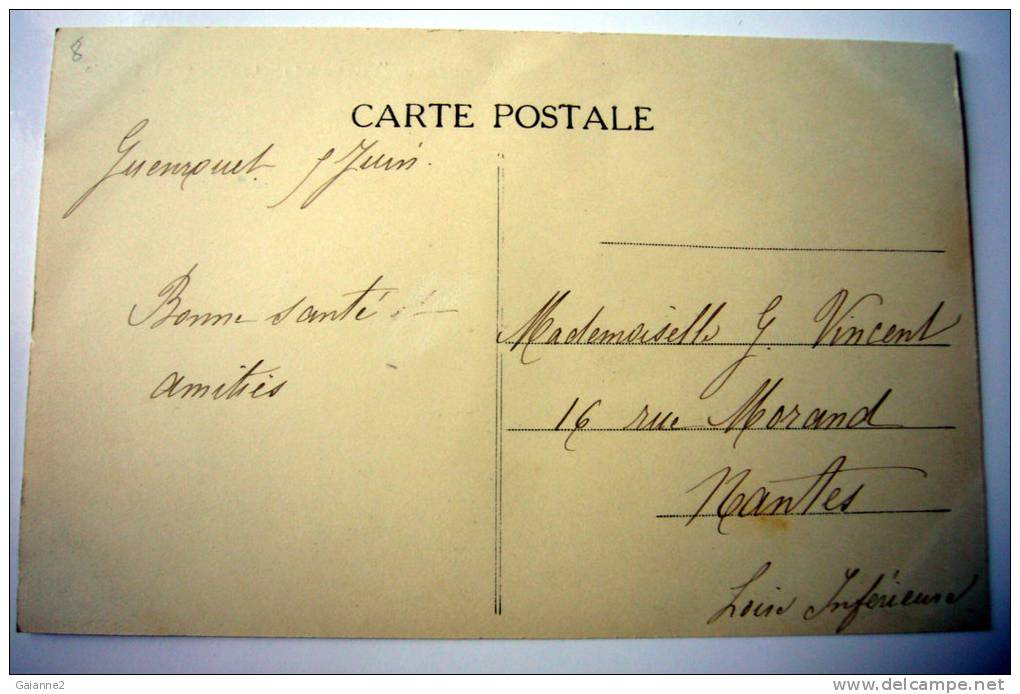 8
CARTE POSTALE
Guenrouet 5 Juin
Bonne santé et
amitiés
Mademoiselle G. Vincent
16 rue Morand
Nantes
Loire Inférieure
Gaianne2
delcampe.net